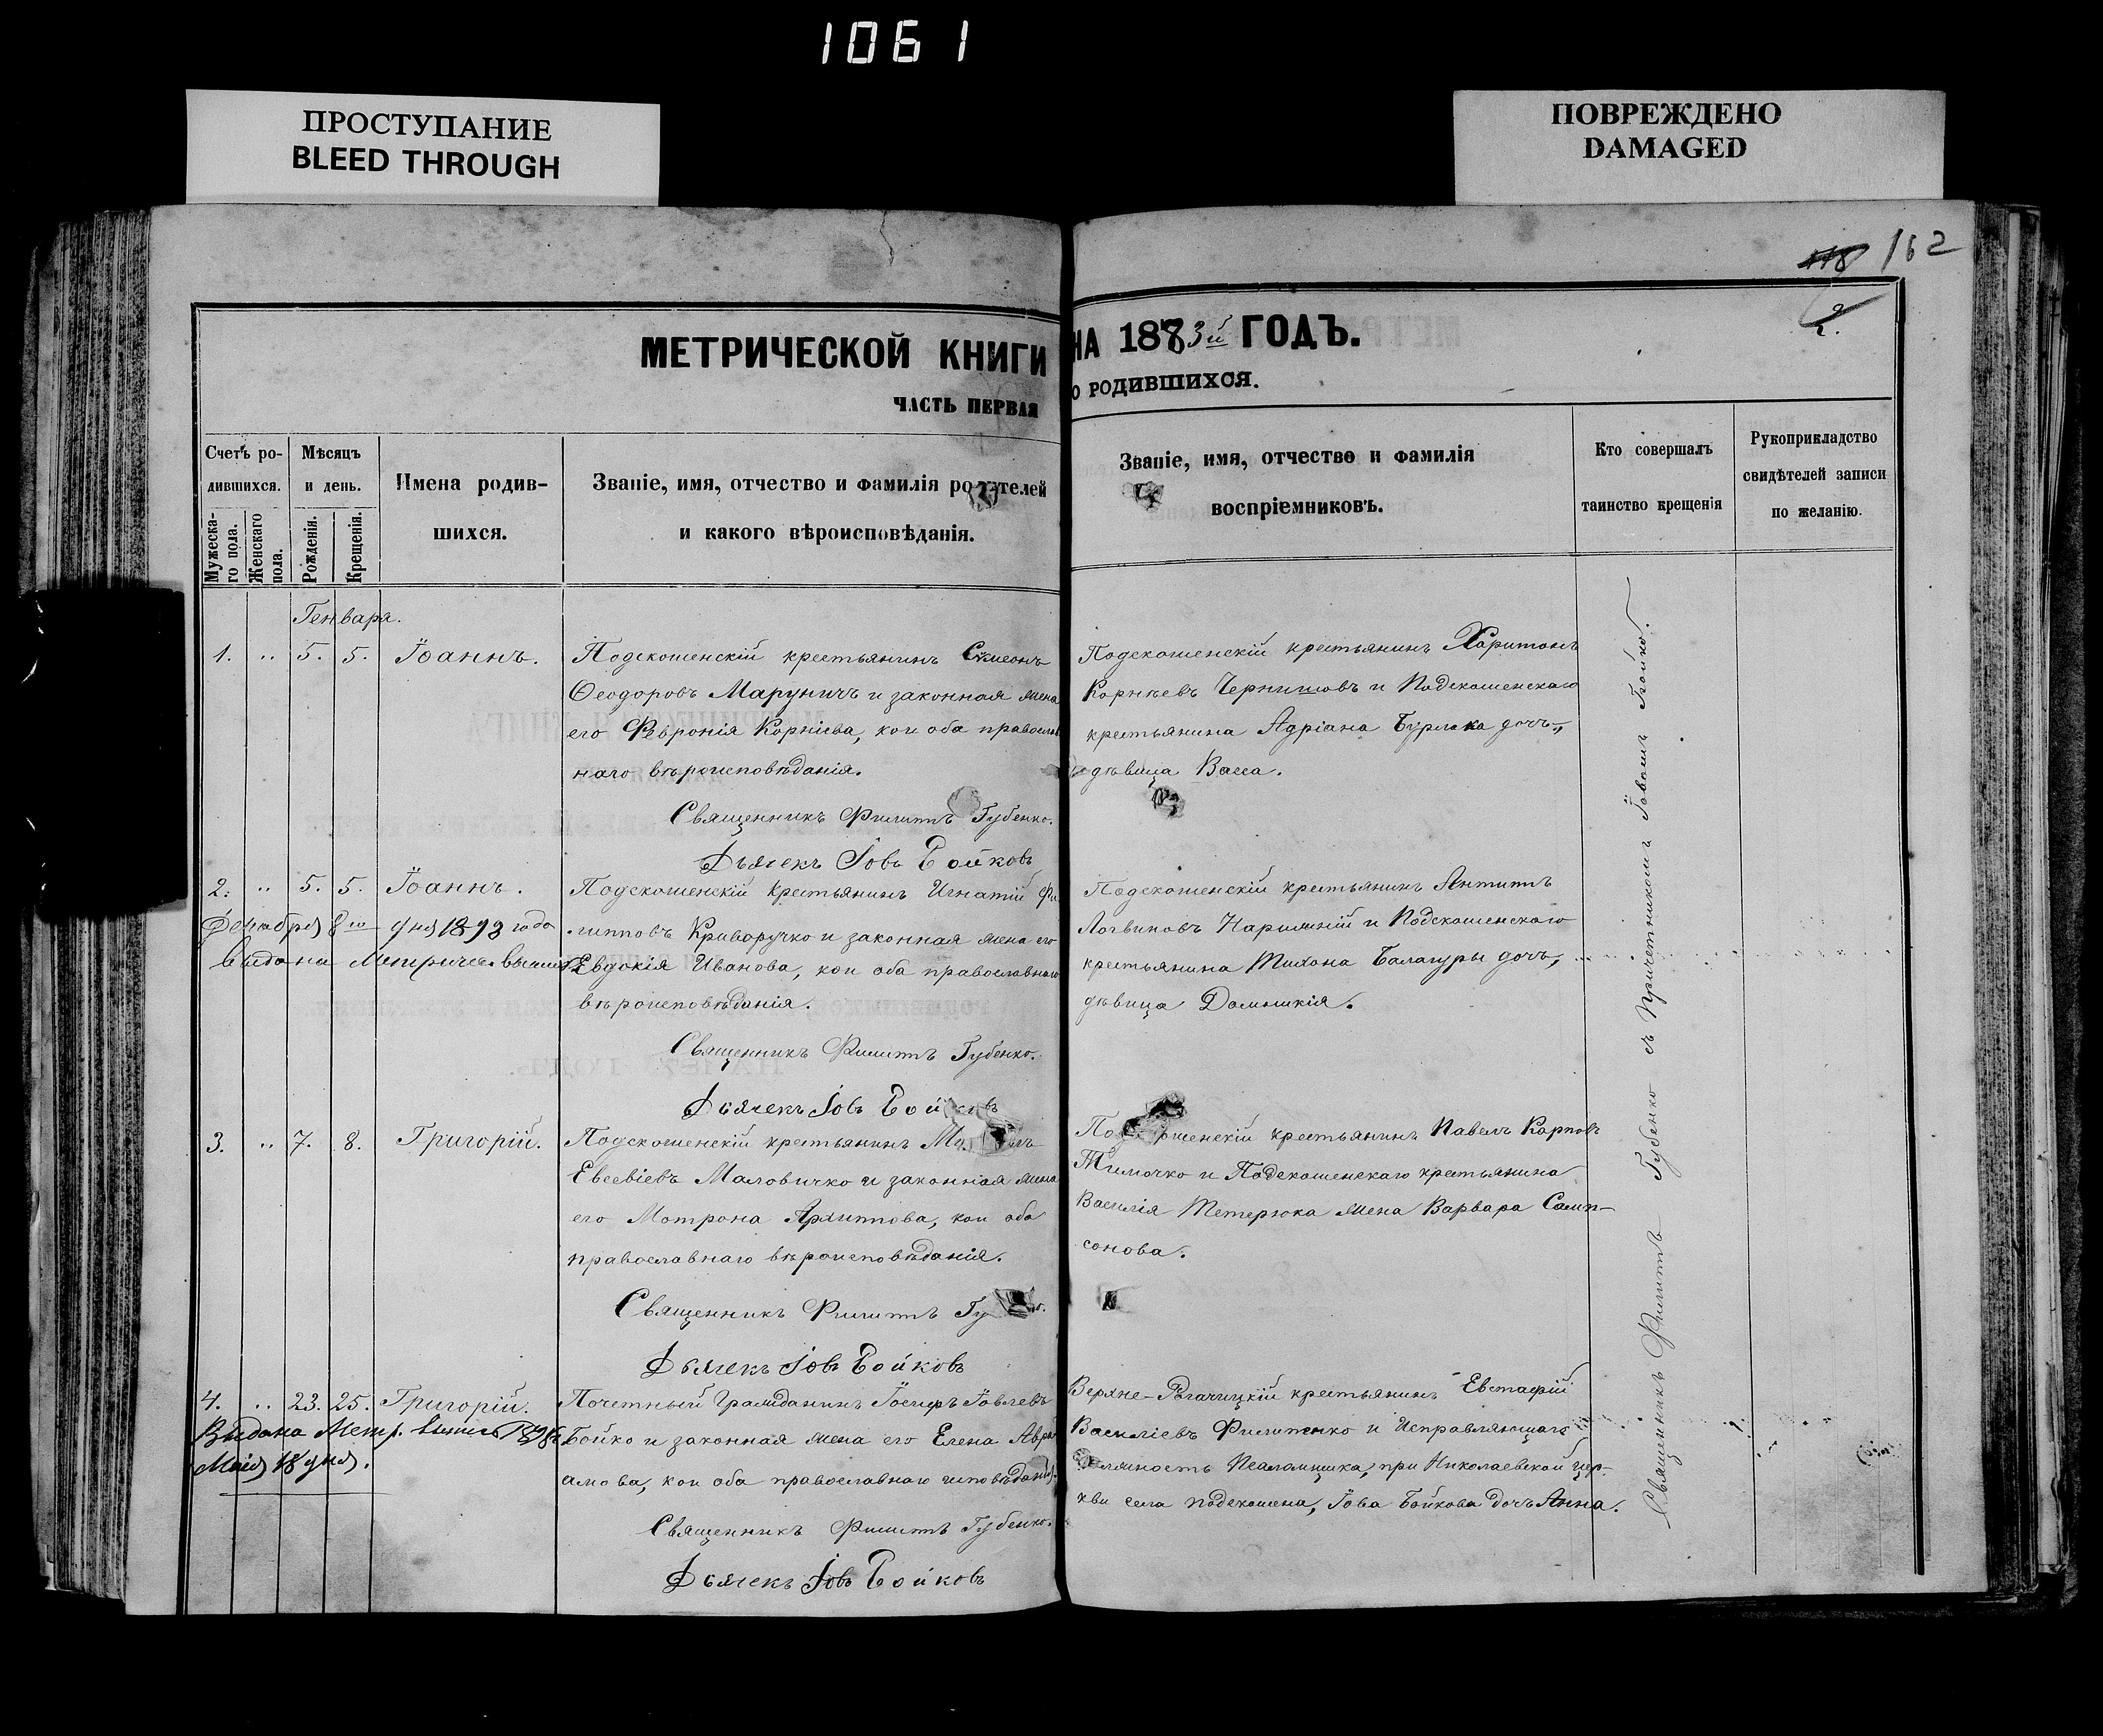 1061
ПРОСТУПАНИЕ
BLEED THROUGH
ПОВРЕЖДЕНО
DAMAGED
118 162
2.
МЕТРИЧЕСКОЙ КНИГИ НА 1883й ГОДЪ.
ЧАСТЬ ПЕРВАЯ О РОДИВШИХСЯ.
Счетъ ро-
дившихся.
Мужеска-
го пола.
Женскаго
пола.
Мѣсяцъ
и день.
Рожденія.
Крещенія.
Имена родив-
шихся.
Званіе, имя, отчество и фамилія родителей
и какого вѣроисповѣданія.
Званіе, имя, отчество и фамилія
воспріемниковъ.
Кто совершалъ
таинство крещенія
Рукоприкладство
свидѣтелей записи
по желанію.
Генваря.
1. „ 5. 5. Іоаннъ.
Подокошенскій крестьянинъ Сѵмеонъ
Ѳеодоровъ Маруничъ и законная жена
его Февронія Корніева, кои оба православ
наго вѣроисповѣданія.
Священникъ Филиппъ Губенко.
Дьячекъ Іовъ Бойковъ
Подокошенскій крестьянинъ Харитонъ
Корнѣевъ Чернишовъ и Подокошенскаго
крестьянина Адріана Бурлака дочь,
дѣвица Васса.
2. „ 5. 5. Іоаннъ.
дня 1893 года
выдана Метричес. выпись
Подокошенскій крестьянинъ Игнатій Фи
липповъ Криворучко и законная жена его
Евдокія Иванова, кои оба православнаго
вѣроисповѣданія.
Священникъ Филиппъ Губенко.
Дьячекъ Іовъ Бойковъ
Подокошенскій крестьянинъ Антипъ
Логвиновъ Нарижній и Подокошенскаго
крестьянина Тихона Балагуры дочь,
дѣвица Домникія.
3. „ 7. 8. Григорій.
Подокошенскій крестьянинъ
Евсевіевъ Маловичко и законная жена
его Мотрона Архиппова, кои оба
православнаго вѣроисповѣданія.
Священникъ Филиппъ Гу
Дьячекъ Іовъ Бойковъ
крестьянинъ Павелъ Карповъ
Тимочко и Подокошенскаго крестьянина
Василія Тетерюка жена Варвара Самп-
сонова.
4. „ 23. 25. Григорій.
Выдана Метр. выпись 1898 г.
Мая 18 дня.
Почетный Гражданинъ Іосифъ Іовлевъ
Бойко и законная жена его Елена Авра
амова, кои оба православнаго исповѣданія.
Священникъ Филиппъ Губенко.
Дьячекъ Іовъ Бойковъ
Верхне-Рогачицкій крестьянинъ Евстафій
Василіевъ Филипенко и Исправляющаго
должность Псаломщика, при Николаевской цер-
кви села Подокошена, Іова Бойкова дочь Анна.
Священникъ Филиппъ Губенко съ Причетникомъ Іовомъ Бойко.